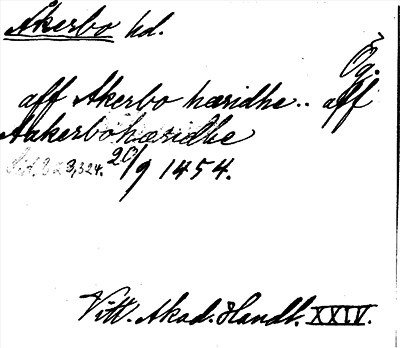 Åkerbo hd.
Ög.
aff Akerbo hæridhe.. aff
Aakerbohæridhe
20/9 1454.
Vitt. Akad. Handl. XXIV.